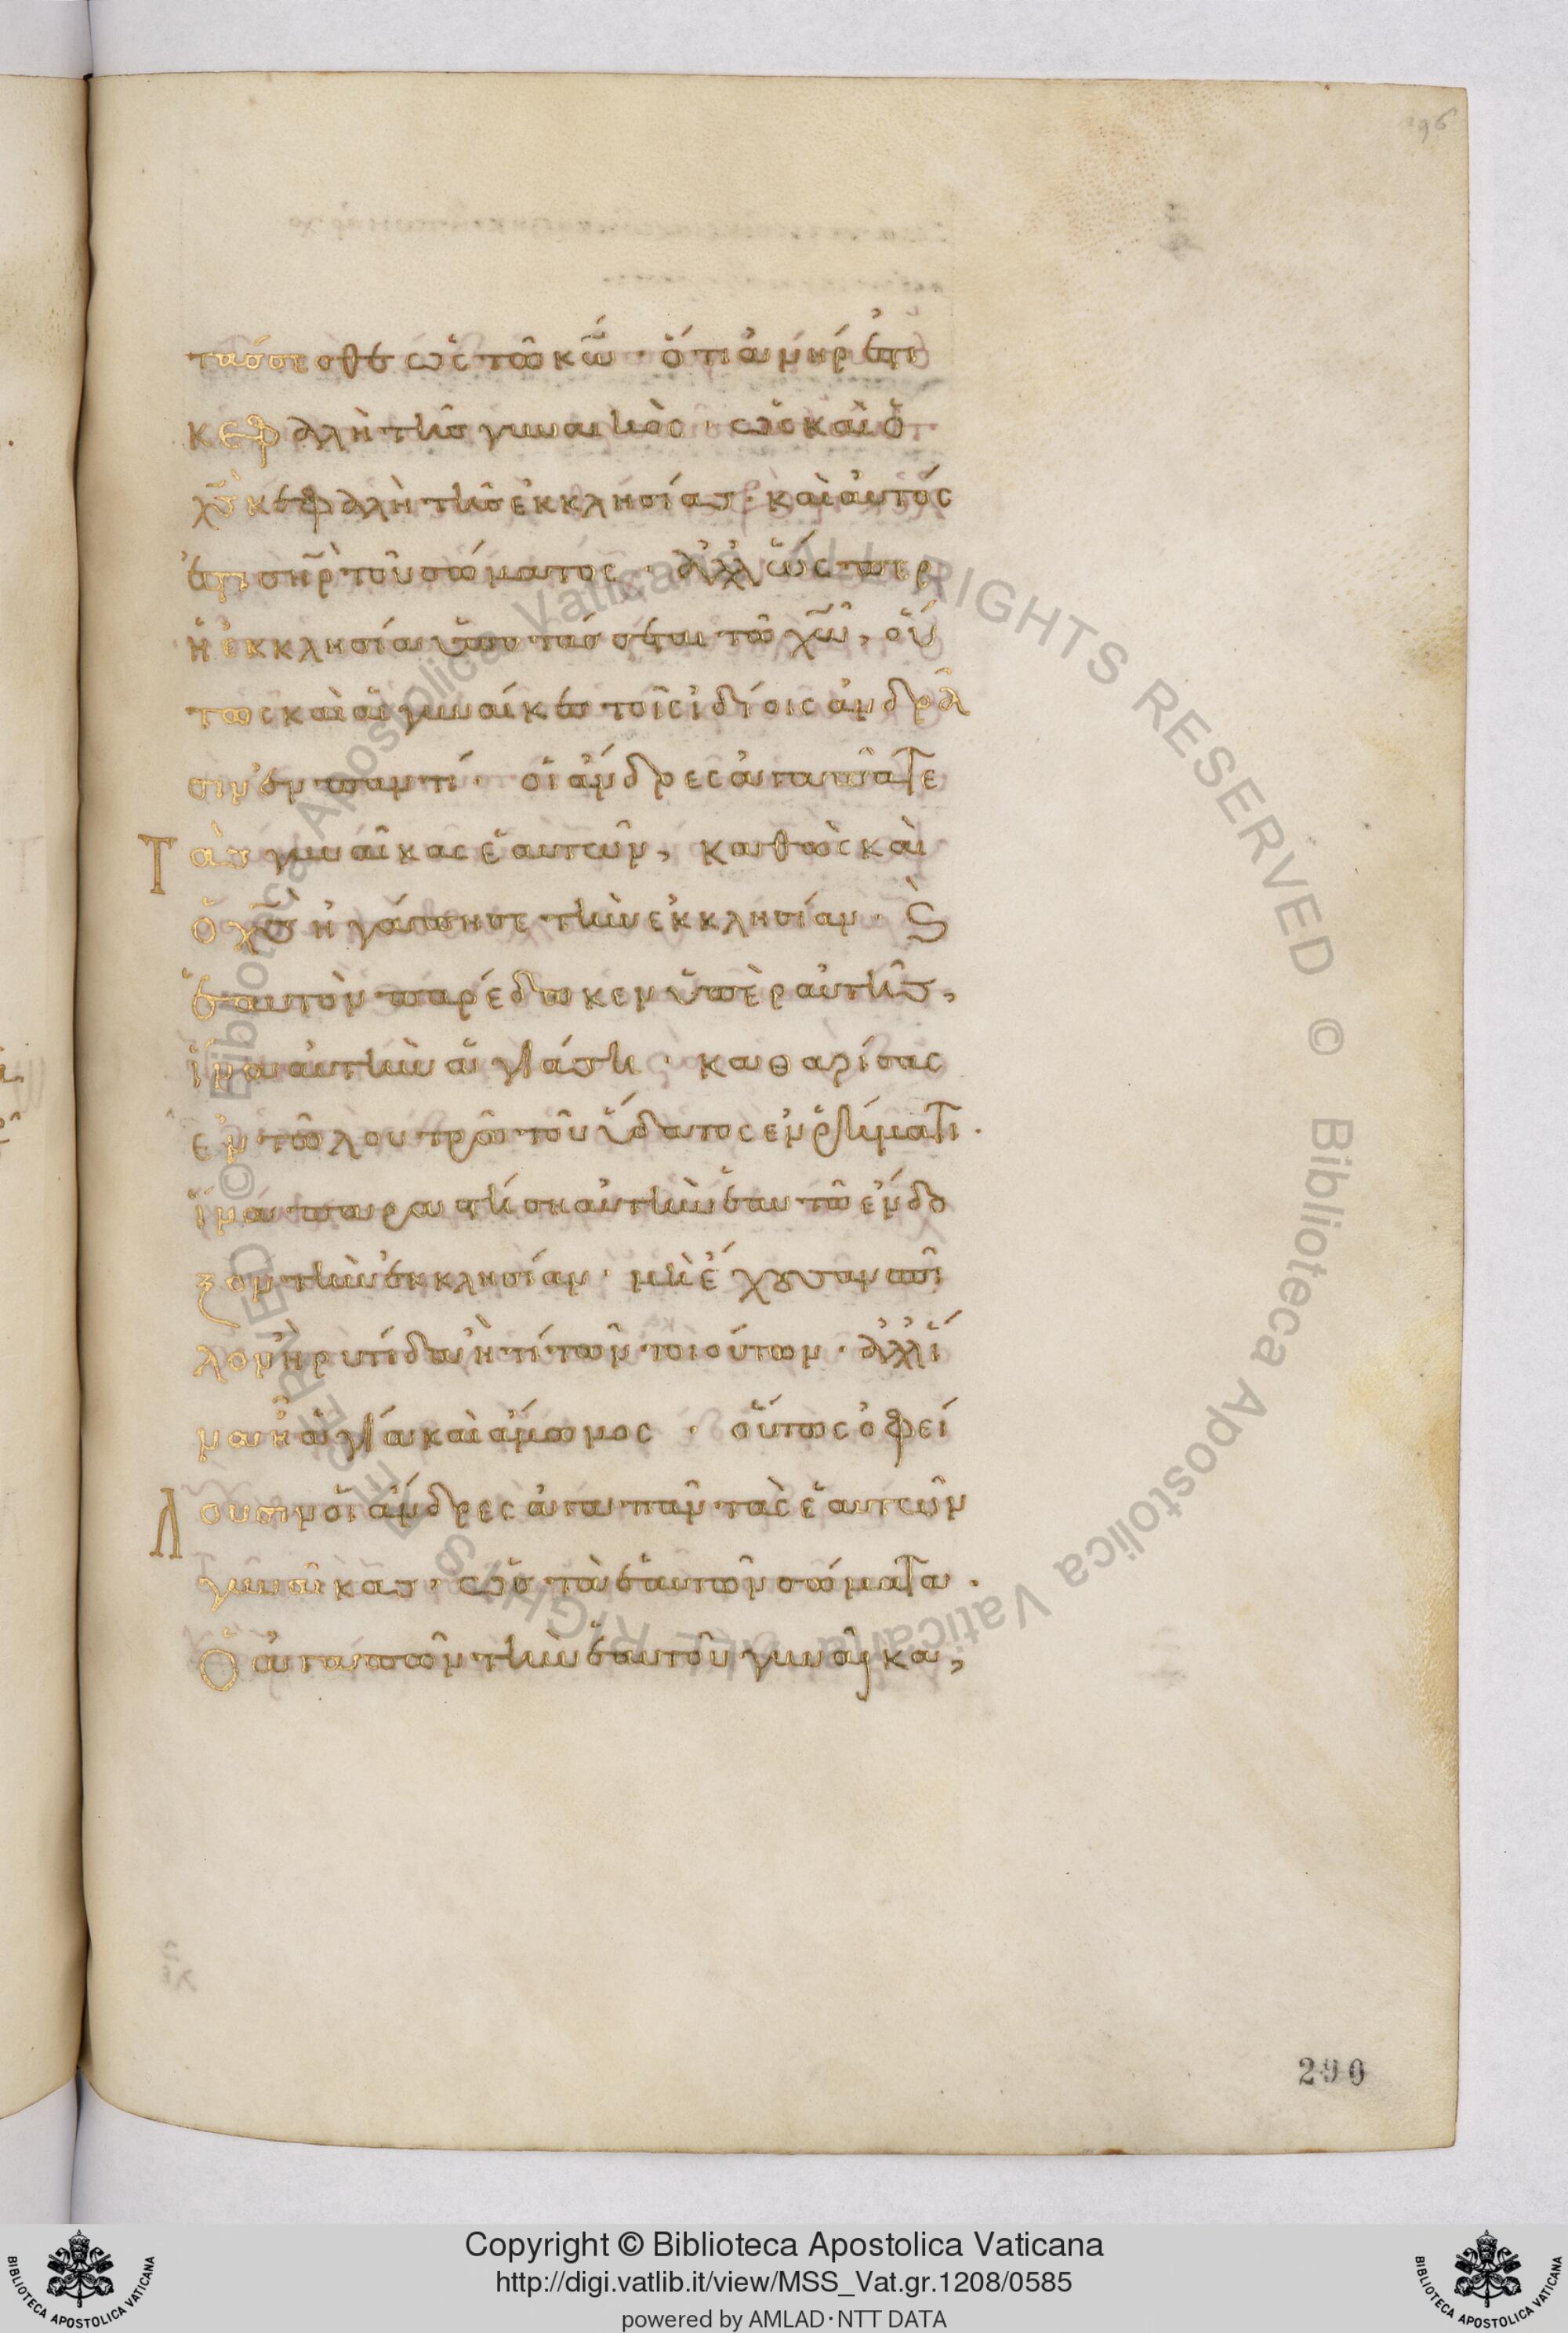 296
τάσσεσθε ὡς τῶ κ̅ω̅· ὅτι ἀνήρ ἐστι
κεφαλὴ τῆς γυναικὸς· ὡς καὶ ὁ
χ̅ς̅ κεφαλὴ τῆς ἐκκλησίας· καὶ αὐτός
ἐστι σ̅η̅ρ̅ τοῦ σώματος· ἀλλ ὥσπερ
ἡ ἐκκλησία ὑποτάσσεται τῶ χ̅ω̅, οὕ
τως καὶ αἱ γυναίκες τοῖς ἰδίοις ἀνδρά
σιν ἐν παντί· οἱ ἄνδρες ἀγαπᾶτε
Τὰς γυναῖκας ἑαυτῶν, καθὼς καὶ
ὁ χ̅ς̅ ἠγάπησε τὴν ἐκκλησίαν· ϗ
ἑαυτὸν παρέδωκεν ὑπὲρ αὐτῆς,
ἵνα αὐτὴν ἁγιάση· καθαρίσας
ἐν τῶ λουτρῶ τοῦ ὕδατος ἐν ῥήματι·
ἵνα παραστήση αὐτὴν ἑαυτῶ ἔνδο
ξον τὴν ἐκκλησίαν· μὴ ἔχουσαν σπῖ
λον ἢ ρυτίδα ἢ τί τῶν τοιούτων· ἀλλ ἵ
να ἦ ἁγία καὶ ἄμωμος· οὕτως ὀφεί
Λουσιν οἱ ἄνδρες ἀγαπᾶν τὰς ἑαυτῶν
γυναῖκας· ὡς τὰ ἑαυτῶν σώματα·
Ὁ ἀγαπῶν τὴν ἑαυτοῦ γυναῖκα,
290
© Biblioteca Apostolica Vaticana ALL RIGHTS RESERVED © Biblioteca Apostolica Vaticana ALL RIGHTS RESERVED
Copyright © Biblioteca Apostolica Vaticana
http://digi.vatlib.it/view/MSS_Vat.gr.1208/0585
powered by AMLAD·NTT DATA
BIBLIOTECA APOSTOLICA VATICANA
BIBLIOTECA APOSTOLICA VATICANA